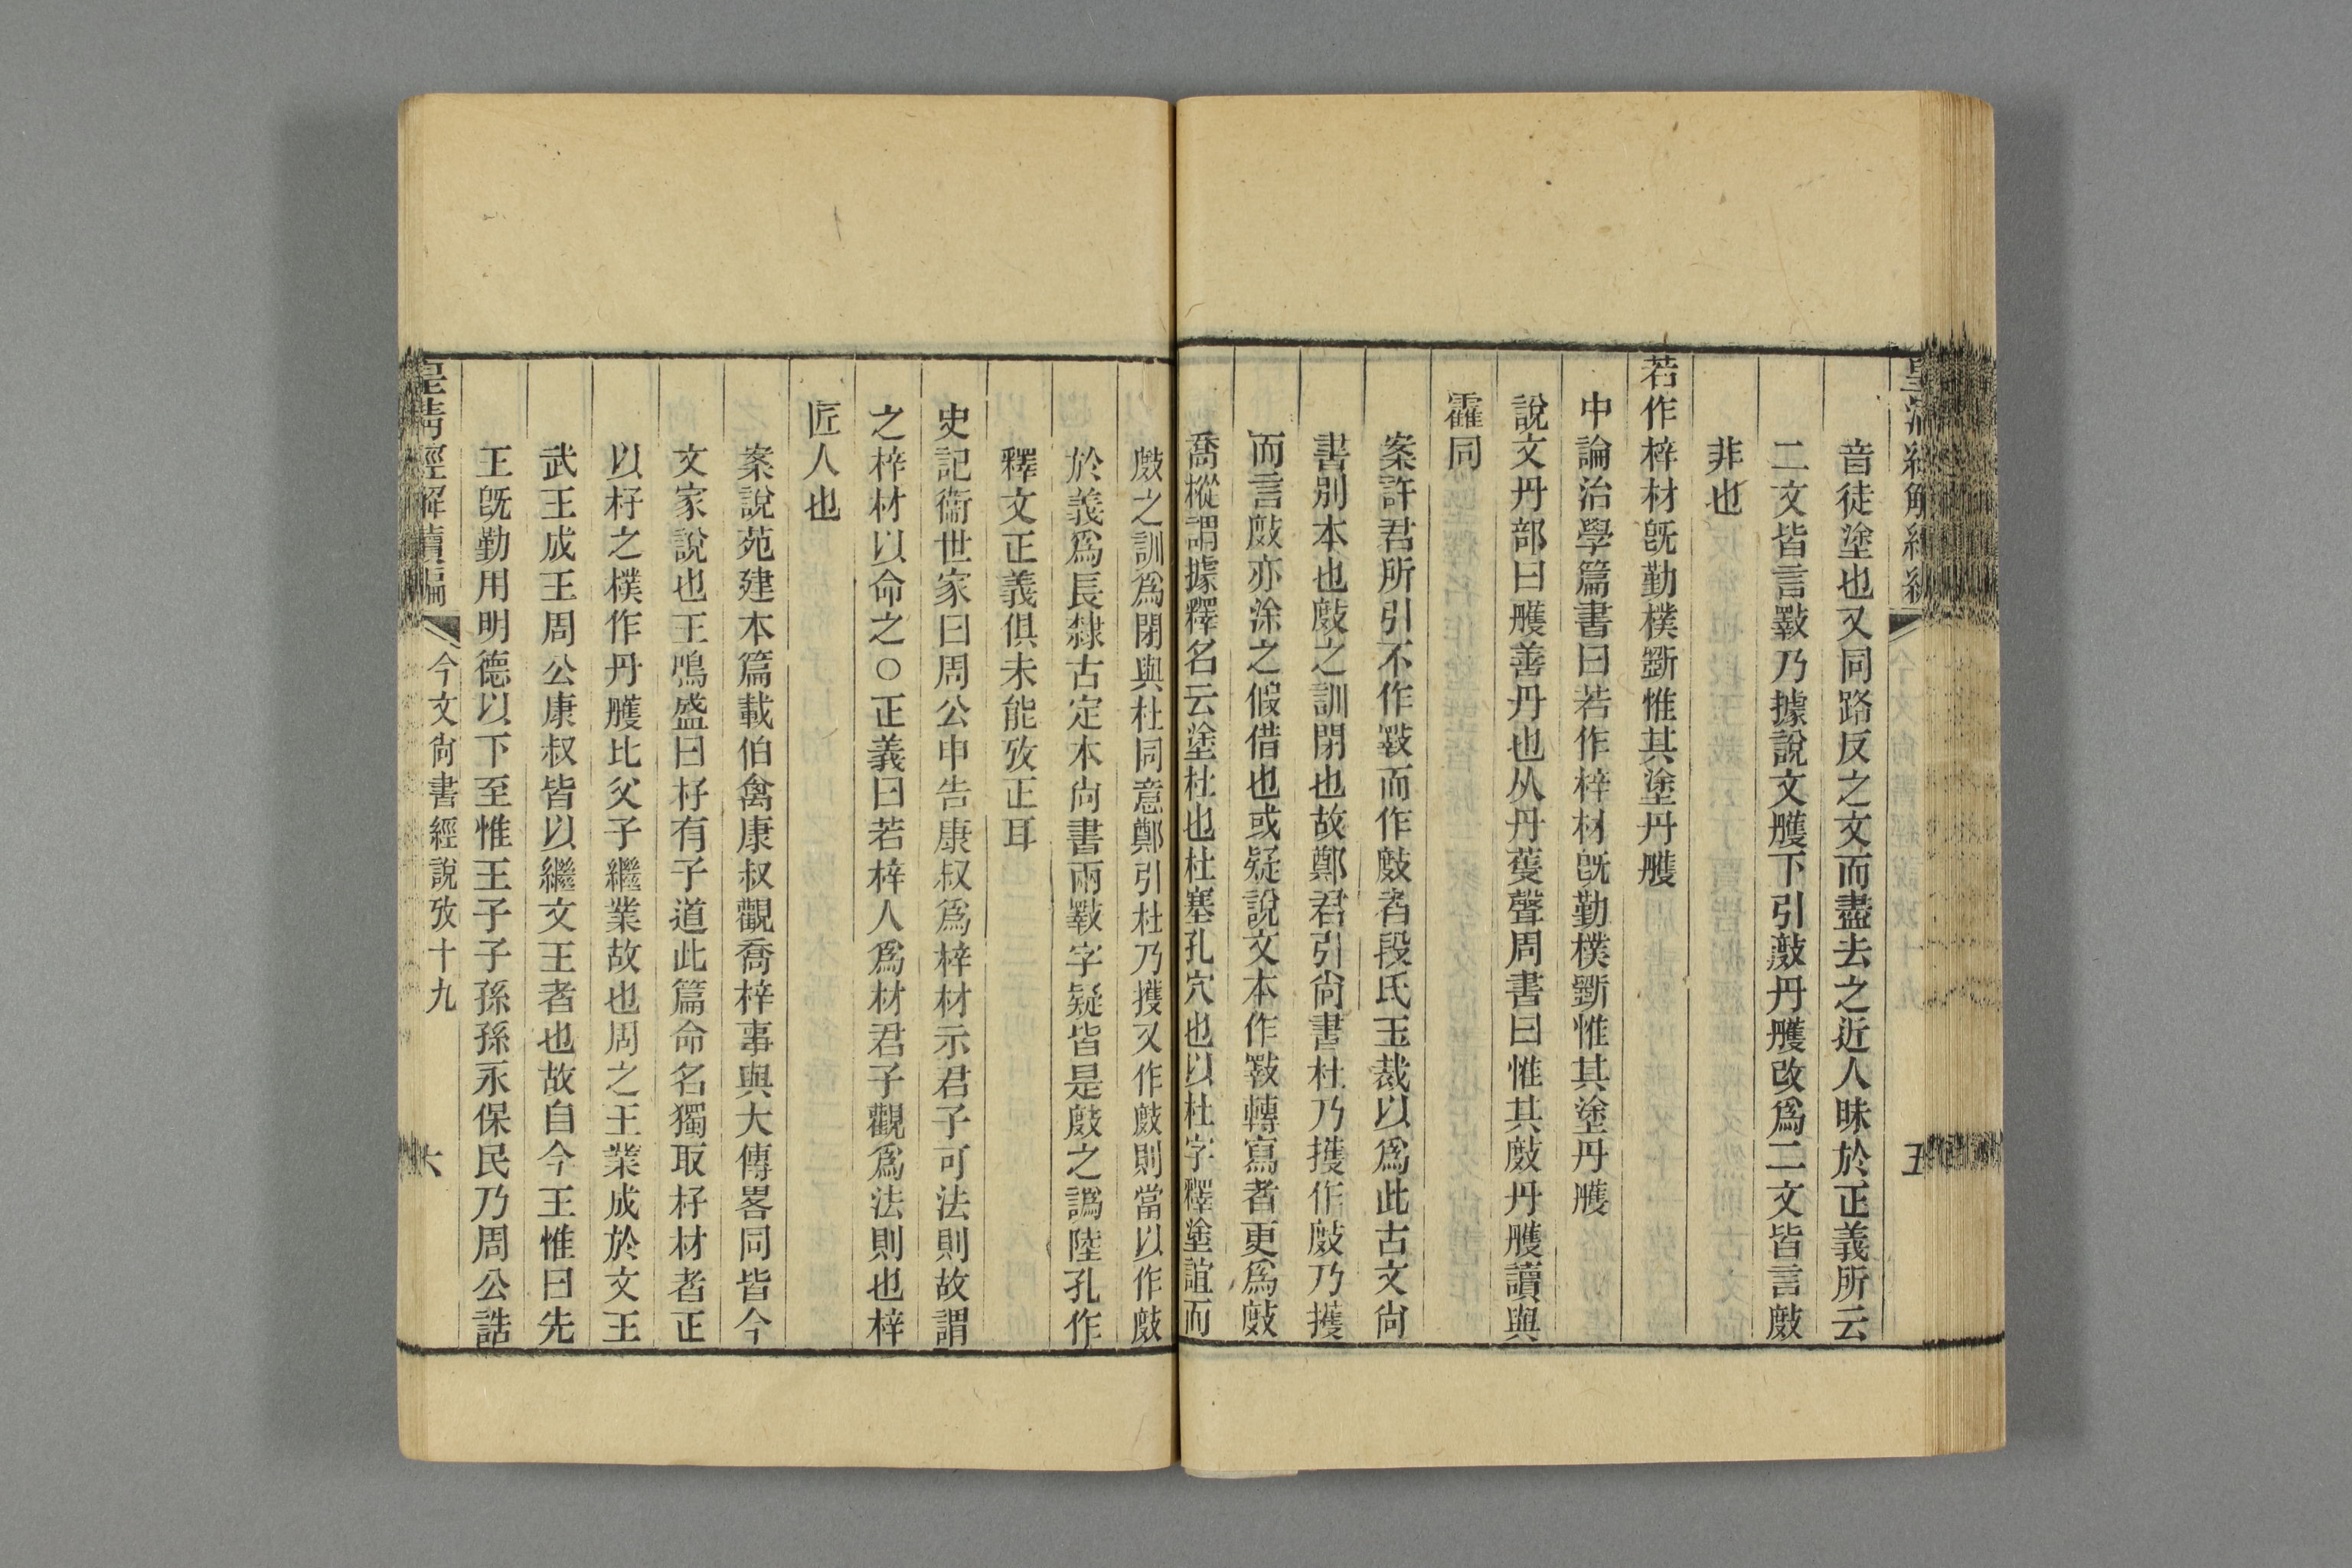 皇清經解續編
五
音徒塗也又同路反之文而盡去之近人昧於正義所云
二文皆言斁乃據說文雘下引敿丹雘改爲二文皆言㪕
非也
若作梓材旣勤樸斲惟其塗丹雘
中論治學篇書曰若作梓材旣勤樸斲惟其塗丹雘
說文丹部曰雘善丹也从丹蒦聲周書曰惟其㪕丹雘讀與
靃同
案許君所引不作斁而作㪕者段氏玉裁以爲此古文尙
書別本也㪕之訓閉也故鄭君引尙書杜乃擭作㪕乃擭
而言㪕亦涂之假借也或疑說文本作斁轉寫者更爲㪕
喬樅謂據釋名云塗杜也杜塞孔穴也以杜字釋塗誼而
㪕之訓爲閉與杜同意鄭引杜乃擭又作㪕則當以作㪕
於義爲長隸古定本尙書兩斁字疑皆是㪕之譌陸孔作
釋文正義俱未能攷正耳
史記衞世家曰周公申告康叔爲梓材示君子可法則故謂
之梓材以命之○正義曰若梓人爲材君子觀爲法則也梓
匠人也
案說苑建本篇載伯禽康叔觀喬梓事與大傳畧同皆今
文家說也王鳴盛曰杍有子道此篇命名獨取杍材者正
以杍之樸作丹雘比父子繼業故也周之王業成於文王
武王成王周公康叔皆以繼文王者也故自今王惟曰先
王旣勤用明德以下至惟王子子孫孫永保民乃周公誥
皇清經解續編
今文尙書經說攷十九
六